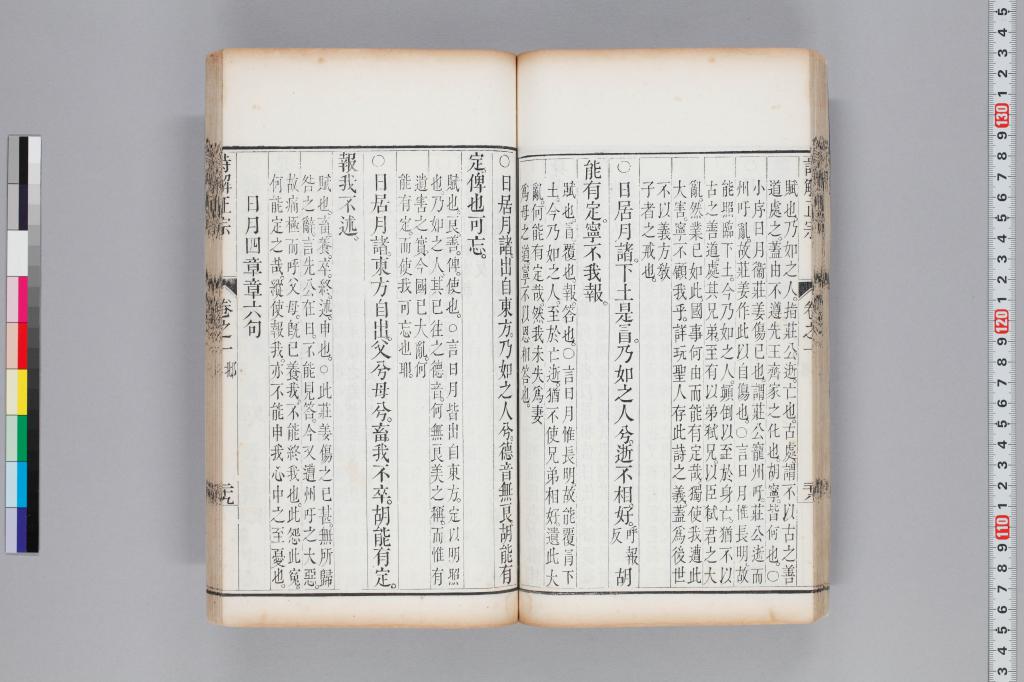 詩解正宗
卷之一
賦也乃如之人指莊公逝亡也古處謂不以古之善
道處之蓋由不遵先王齊家之化也胡寧皆何也○
小序日月衞莊姜傷己也謂莊公寵州吁莊公逝而
州吁亂故莊姜作此以自傷也○言日月惟長明故
能照臨下土今乃如之人顛倒以至於身亡猶不以
古之善道處其兄弟至有以弟弑兄以臣弑君之大
亂然業已如此國事何由而能有定哉獨使我遭此
大害寧不顧我乎詳玩聖人存此詩之義蓋為後世
不以義方敎
子者之戒也
○日居月諸下土是冒乃如之人兮逝不相好呼報反胡
能有定寧不我報
賦也冒覆也報答也○言日月惟長明故能覆冒下
土今乃如之人至於亡逝猶不使兄弟相好遺此大
亂何能有定哉然我未失為妻
為母之道寧不以恩相答也
○日居月諸出自東方乃如之人兮德音無良胡能有
定俾也可忘
賦也良善俾使也○言日月皆出自東方定以明照
也乃如之人其已往之德音何無良美之稱而惟有
遺害之實今國已大亂何
能有定而使我可忘也耶
○日居月諸東方自出父兮母兮畜我不卒胡能有定
報我不述
賦也畜養卒終述申也○此莊姜傷之已甚無所歸
咎之辭言先公在日不能見答今又遭州吁之大惡
故痛極而呼父母旣已養我不能終我也此怨此寃
何能定之哉縱使報我亦不能申我心中之至憂也
日月四章章六句
詩解正宗
卷之一
邶